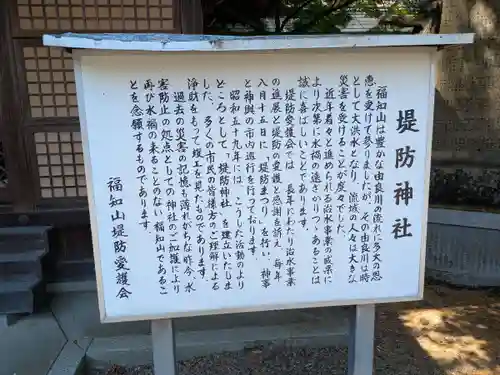 堤防神社
福知山は豊かな由良川の流れに多大の恩
恵を受けて参りましたが、その由良川は時
として大洪水となり、流域の人々は大きな
災害を受けることが度々でした。
近年着々と進められる治水事業の成果に
より次第に水禍の遠ざかりつゝあることは
誠に喜ばしいことであります。
堤防愛護会では、長年にわたり治水事業
の進展と堤防の愛護と感謝を訴え、毎年
八月十五日に「堤防まつり」を行い、神事
と神輿の市内巡行を行っております。
昭和五十九年には、こうした活動のより
どころとして「堤防神社」を建立いたしま
した。多くの市民の皆様方のご理解による
浄財をもって竣工を見たものであります。
過去の災害の記憶も薄れがちな昨今、水
害防止の拠点としての神社のご加護により
再び水禍の来ることのない福知山であるこ
とを念願するものであります。
福知山堤防愛護会